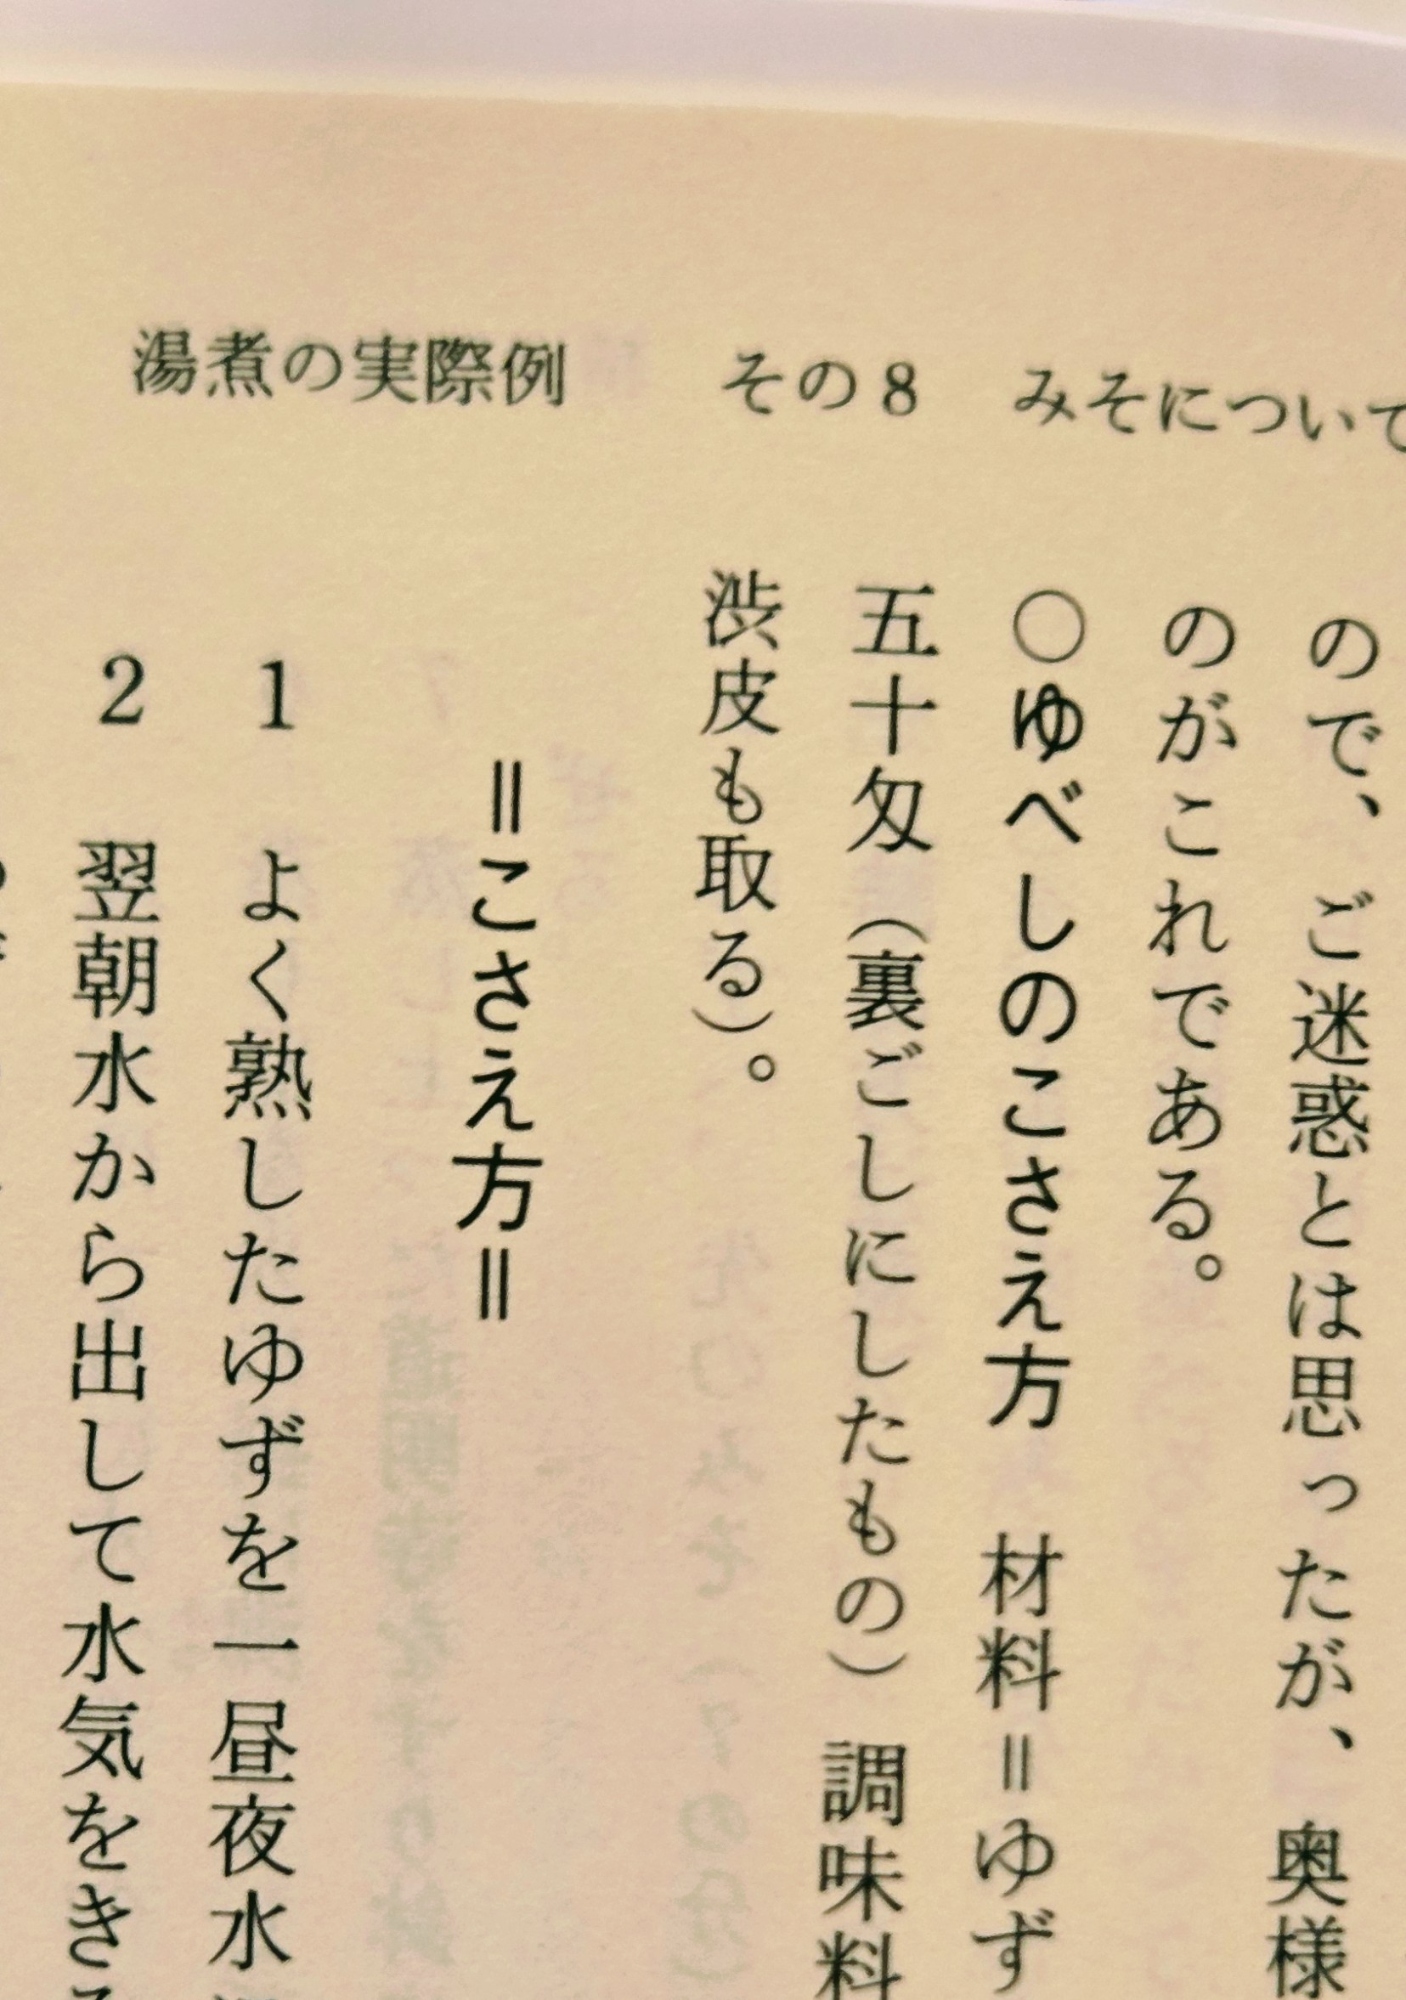 湯煮の実際例　その8　みそについて
ので、ご迷惑とは思ったが、奥様
のがこれである。
○ゆべしのこさえ方　材料＝ゆず
五十匁（裏ごしにしたもの）調味料
渋皮も取る）。
＝こさえ方＝
1　よく熟したゆずを一昼夜水
2　翌朝水から出して水気をき